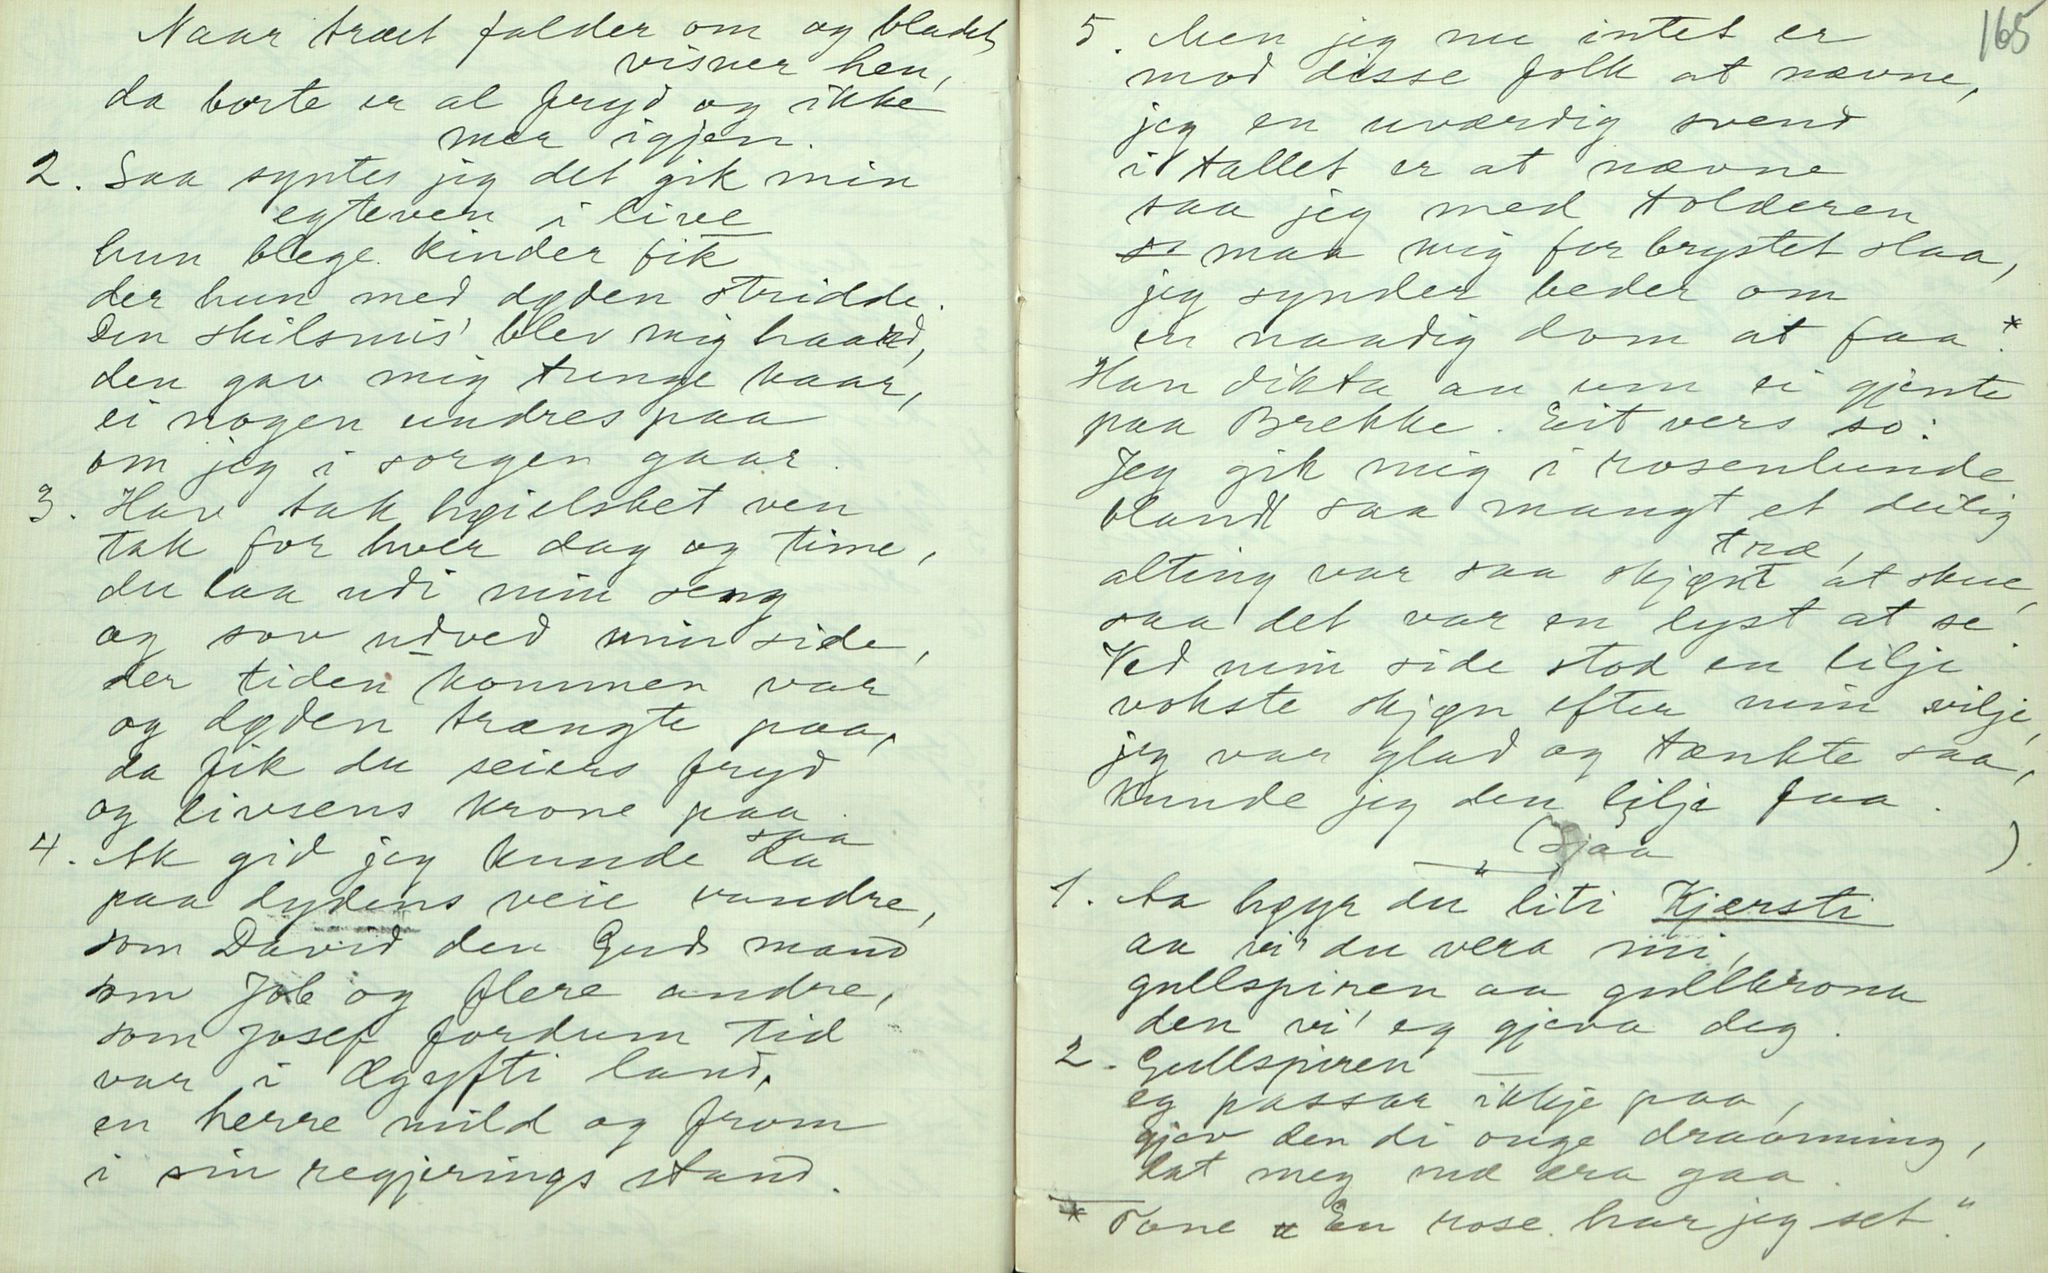 Naar træet falder om og bladet
visner hen,
da borte er al fryd og ikke
mer igjen.
2. Saa syntes jeg det gik min
egteven i live
hun blege kinder fik
der hun med døden stridde.
Den skilsmis' blev mig haard,
den gav mig tunge kaar,
ei nogen undres paa
om jeg i sorgen gaar.
3. Hav tak høielsket ven
tak for hver dag og time,
du laa udi min seng
og sov udved min side,
der tiden kommen var
og døden trængte paa,
da fik du seiers fryd
og livsens krone paa.
4. Ak gid jeg kunde saa
da
paa dydens veie vandre,
som David den Guds mand
som Job og flere andre,
som Josef fordum tid
var i Ægyfti land,
en herre mild og from
i sin regjerings stand.
165
5. Men jeg nu intet er
mod disse folk at nævne,
jeg en uværdig svend
i tallet er at nævne
saa jeg med tolderen
maa mig for brystet slaa,
jeg synder beder om
en naadig dom at faa.*
Han dikta au um ei gjente
paa Brekke. Eit vers so:
Jeg gik mig i rosenlunde
blandt saa mangt et deilig
træ,
alting var saa skjønt at skue,
saa det var en lyst at se.
Ved min side stod en lilje
vokste skjøn efter min vilje,
jeg var glad og tænkte saa,
kunde jeg den lilje faa.
(Sjaa )
1. Aa høyr du liti Kjersti
aa vi' du vera mi,
gullspiren aa gullkrona
den vi' eg gjeva deg.
2. Gullspiren —
eg passar ikkje paa,
gjev den di onge draanning,
lat meg mæ æra gaa.
* Tone „En rose har jeg set."